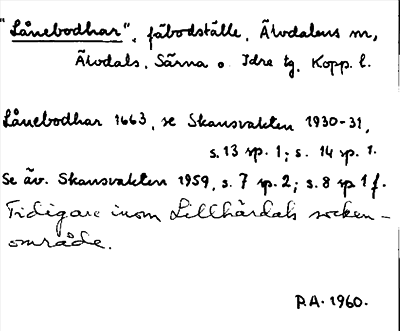 "Lånebodhar", fäbodställe, Älvdalens m,
Älvdals, Särna o Idre tg, Kopp. l.
Lånebodhar 1663, se Skansvakten 1930-31,
s. 13 sp. 1; s. 14 sp. 1.
Se äv. Skansvakten 1959, s. 7 sp. 2; s. 8 sp 1 f.
Tidigare inom Lillhärdals socken-
område.
P.A. 1960.